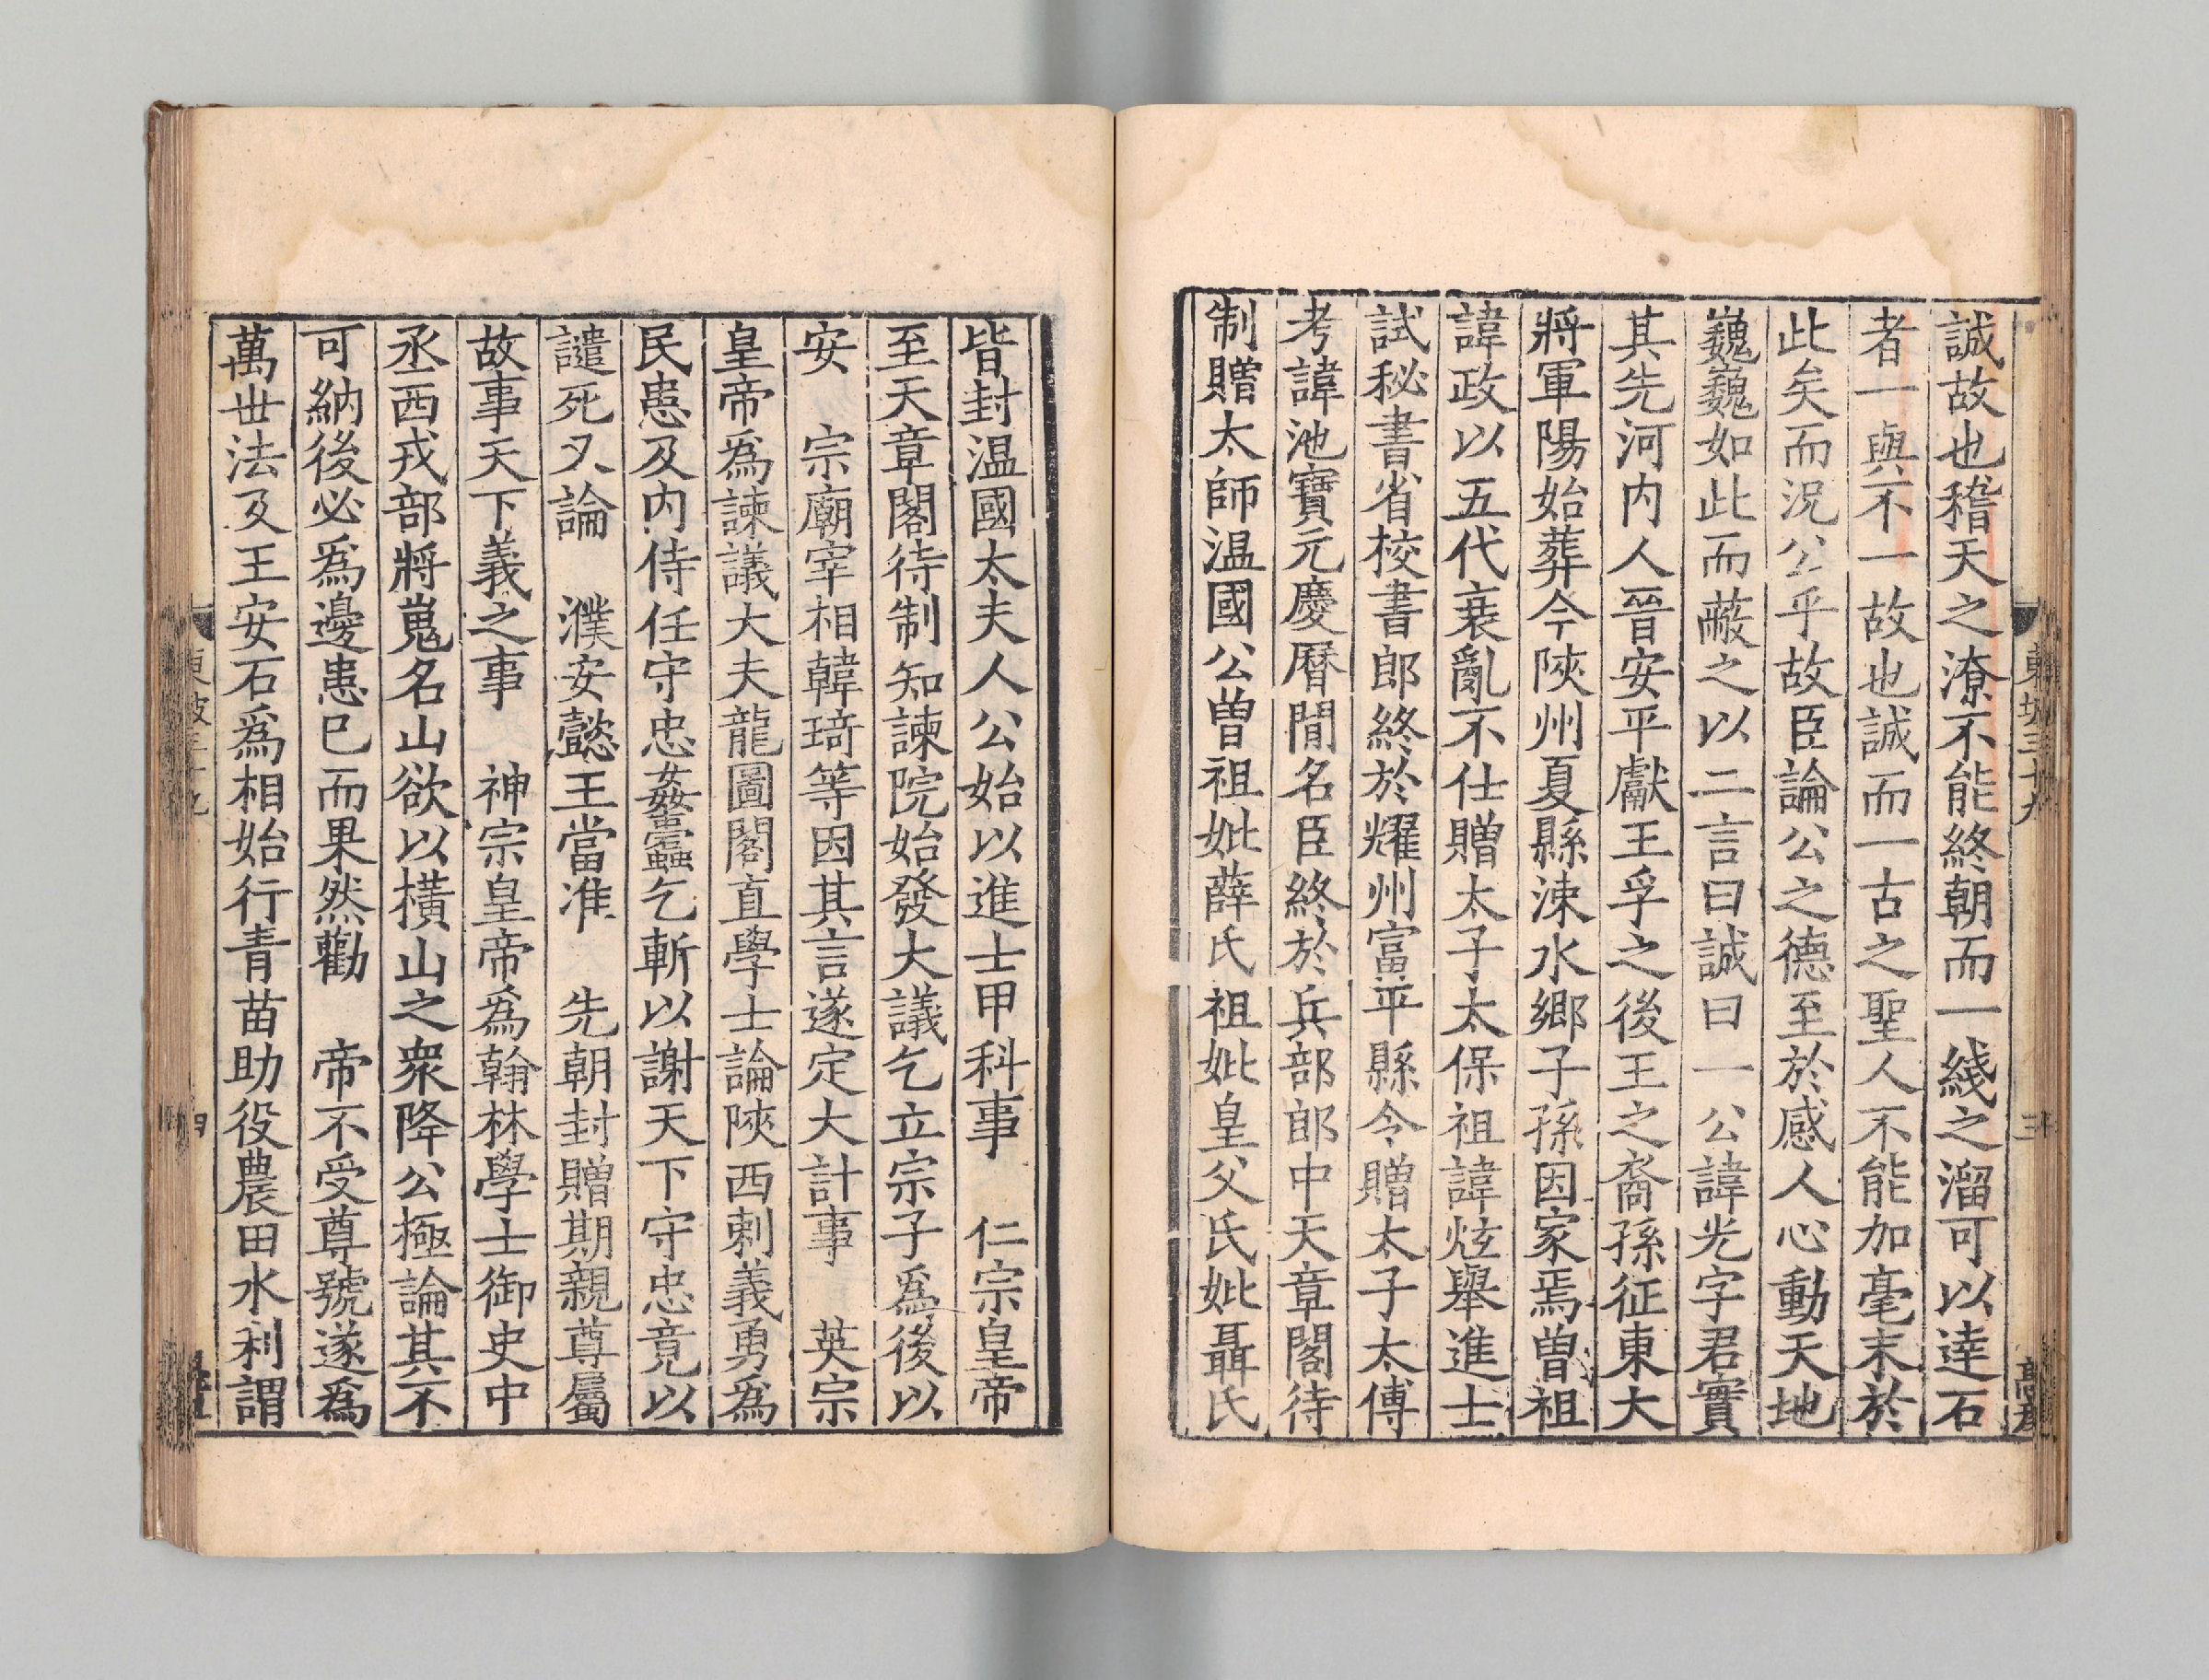 誠故也稽天之潦不能終朝而一綫之溜可以達石
者一與不一故也誠而一古之聖人不能加毫末於
此矣而況公乎故臣論公之德至於感人心動天地
巍巍如此而蔽之以二言曰誠曰一公諱光字君實
其先河内人晉安平獻王孚之後王之裔孫征東大
將軍陽始葬今陝州夏縣涑水鄉子孫因家焉曾祖
諱政以五代衰亂不仕贈太子太保祖諱炫舉進士
試秘書省校書郎終於耀州富平縣令贈太子太傅
考諱池寶元慶曆閒名臣終於兵部郎中天章閣待
制贈太師温國公曾祖妣薛氏祖妣皇父氏妣聶氏
皆封温國太夫人公始以進士甲科事　仁宗皇帝
至天章閣待制知諫院始發大議乞立宗子爲後以
安　宗廟宰相韓琦等因其言遂定大計事　英宗
皇帝爲諫議大夫龍圖閣直學士論陝西刺義勇爲
民患及内侍任守忠姦蠹乞斬以謝天下守忠竟以
譴死又論　濮安懿王當准　先朝封贈期親尊屬
故事天下義之事　神宗皇帝爲翰林學士御史中
丞西戎部將嵬名山欲以橫山之衆降公極論其不
可納後必爲邊患已而果然勸　帝不受尊號遂爲
萬世法及王安石爲相始行青苗助役農田水利謂